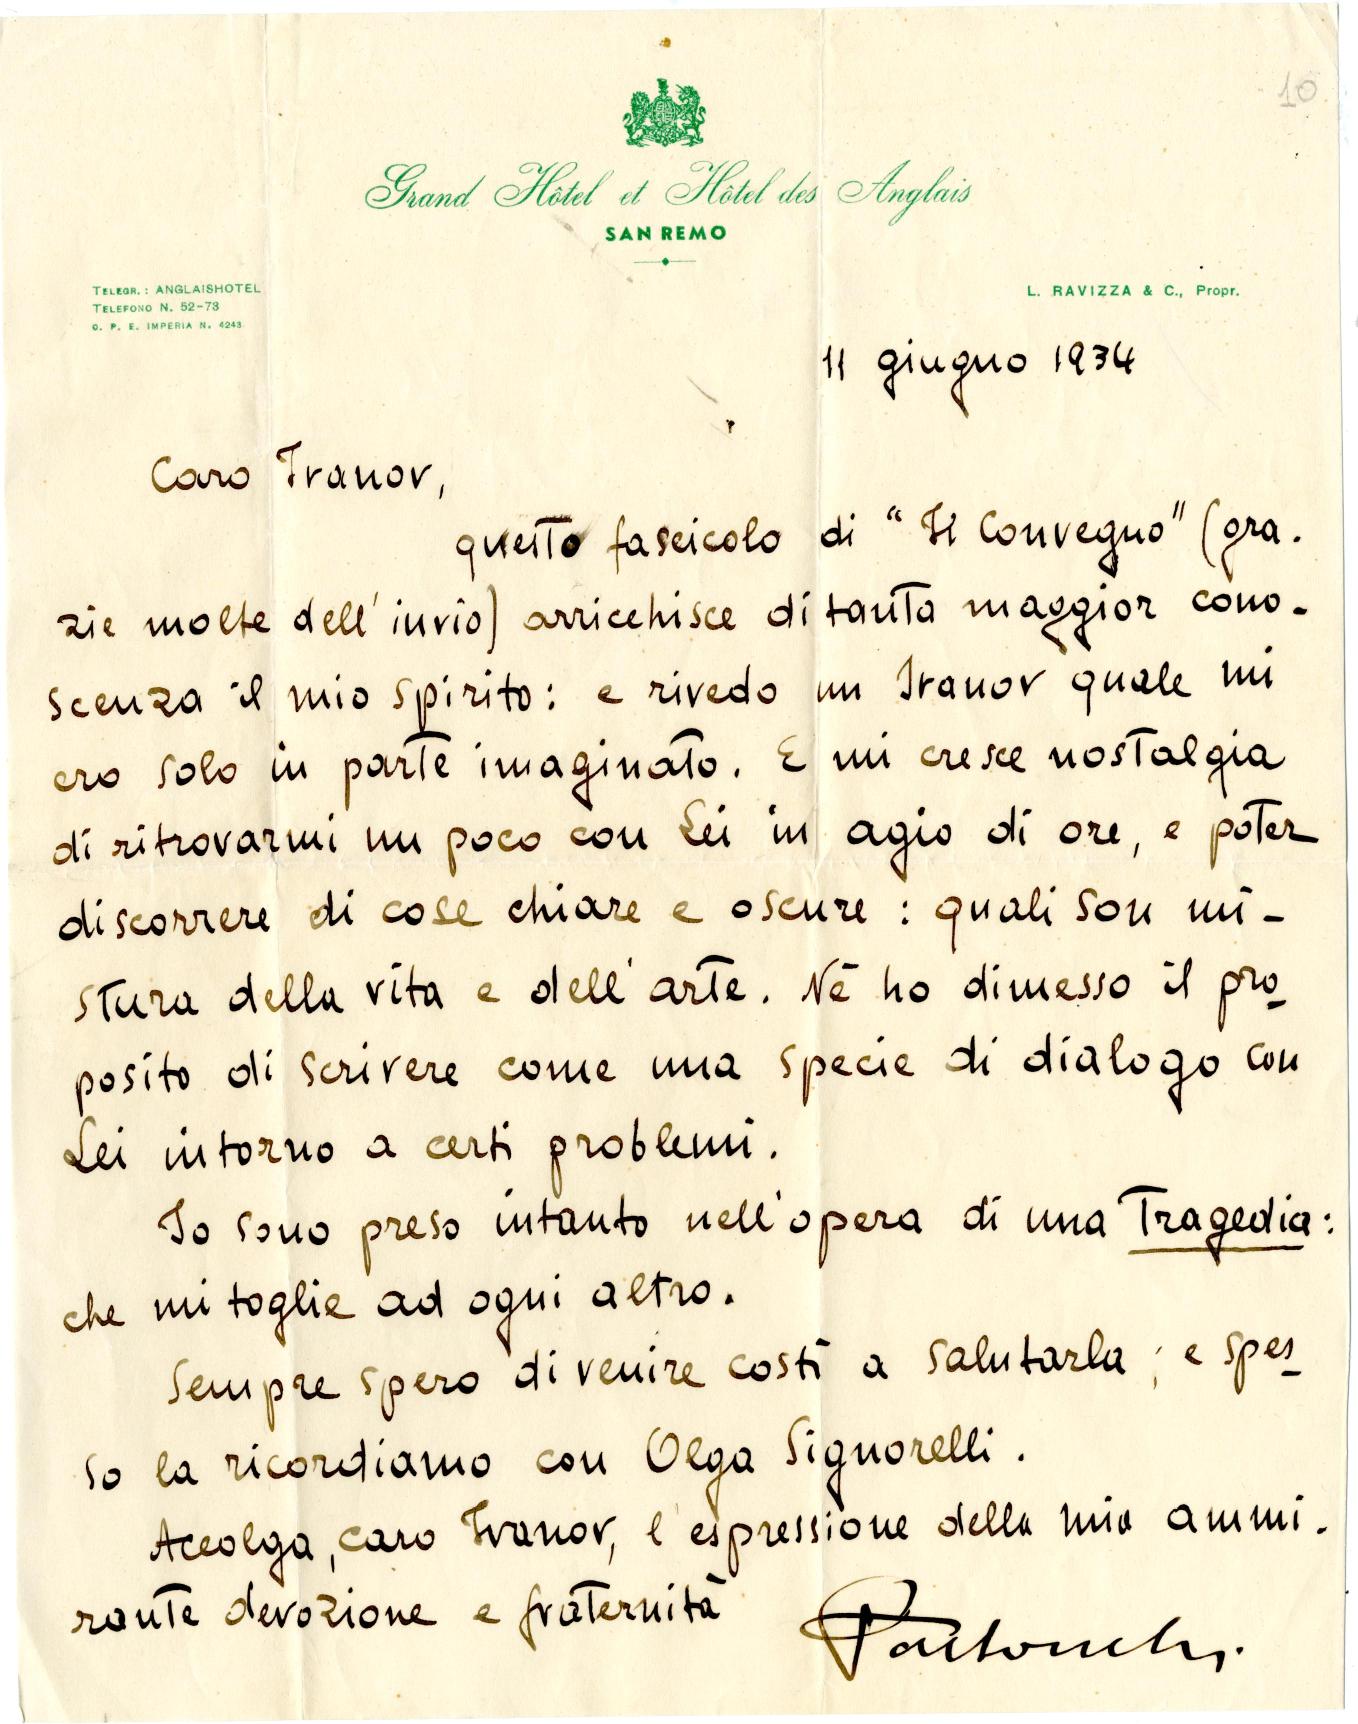 10
Grand Hôtel et Hôtel des Anglais
SAN REMO
TELEGR.: ANGLAISHOTEL
TELEFONO N. 52-73
C. P. E. IMPERIA N. 4243
L. RAVIZZA & C., Propr.
11 giugno 1934
Caro Ivanov,
questo fascicolo di "Il Convegno" (gra-
zie molte dell'invio) arricchisce di tanta maggior cono-
scenza il mio spirito: e rivedo un Ivanov quale mi
ero solo in parte imaginato. E mi cresce nostalgia
di ritrovarmi un poco con Lei in agio di ore, e poter
discorrere di cose chiare e oscure: quali son mi-
stura della vita e dell'arte. Nè ho dimesso il pro-
posito di scrivere come una specie di dialogo con
Lei intorno a certi problemi.
Io sono preso intanto nell'opera di una Tragedia:
che mi toglie ad ogni altro.
Sempre spero di venire costì a salutarla; e spes-
so la ricordiamo con Olga Signorelli.
Accolga, caro Ivanov, l'espressione della mia ammi-
rante devozione e fraternità
Pastonchi.